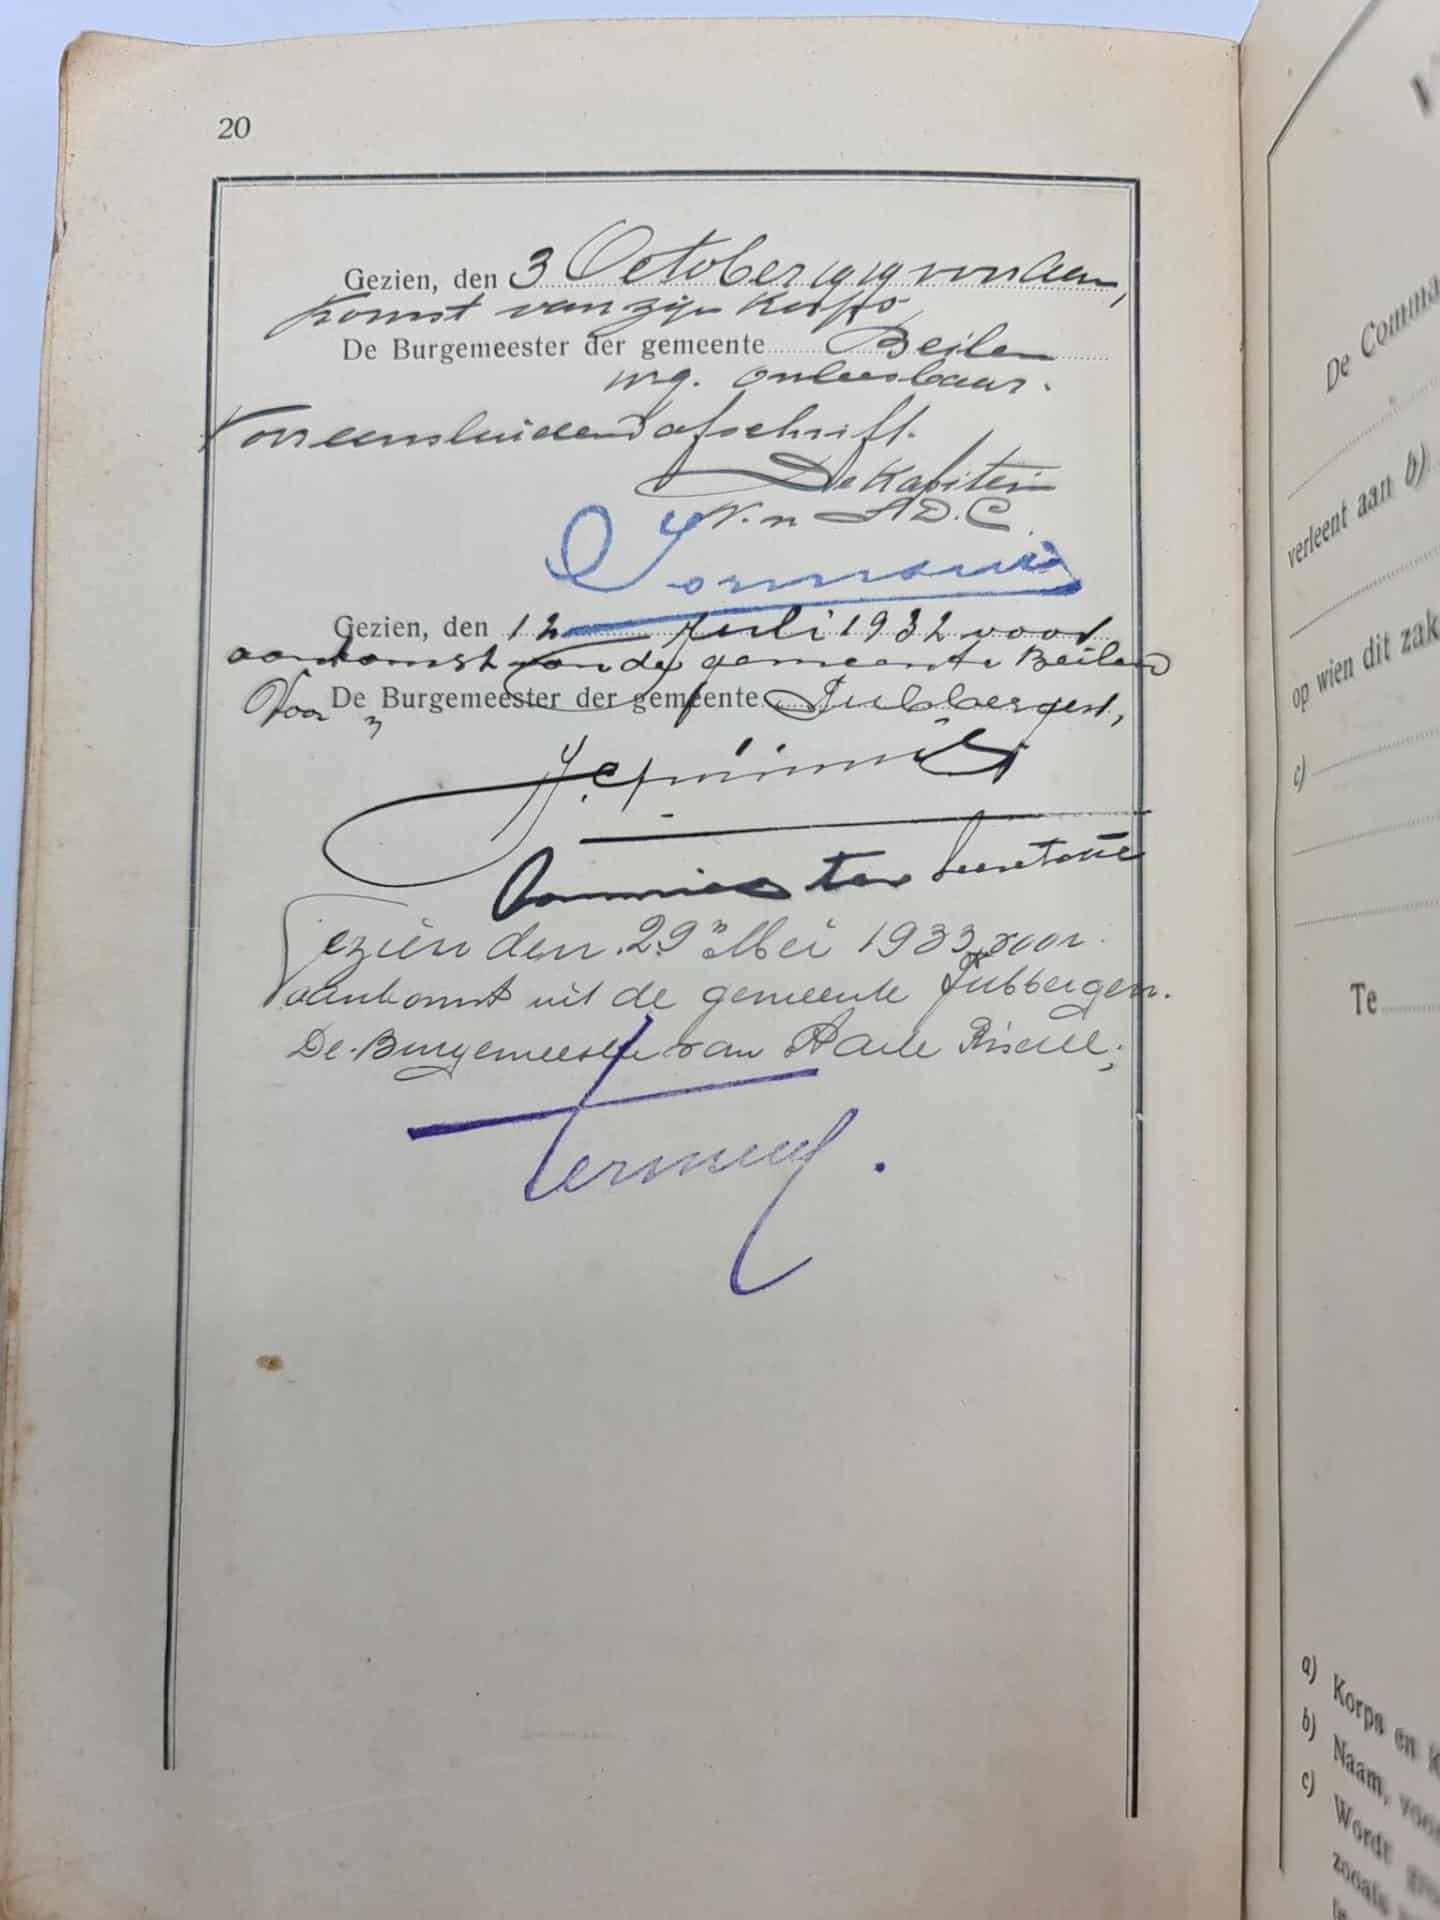 20
Gezien, den 3 October 1919 voor aan,
komst van zijn Korps
De Burgemeester der gemeente Beilen
w.g. onleesbaar.
Voor eensluidend afschrift.
De Kapitein
Gezien, den 12 Juli 1932 voor
aankomst van de gemeente Beilen
Voor De Burgemeester der gemeente Tubbergen,
Commies ter Secretarie
Gezien den 29 Mei 1933 voor
aankomst uit de gemeente Tubbergen.
De Burgemeester van
De Comma
verleent aan b)
op wien dit zak
c)
Te
a) Korps en K
b) Naam, voor
c) Wordt
zooals